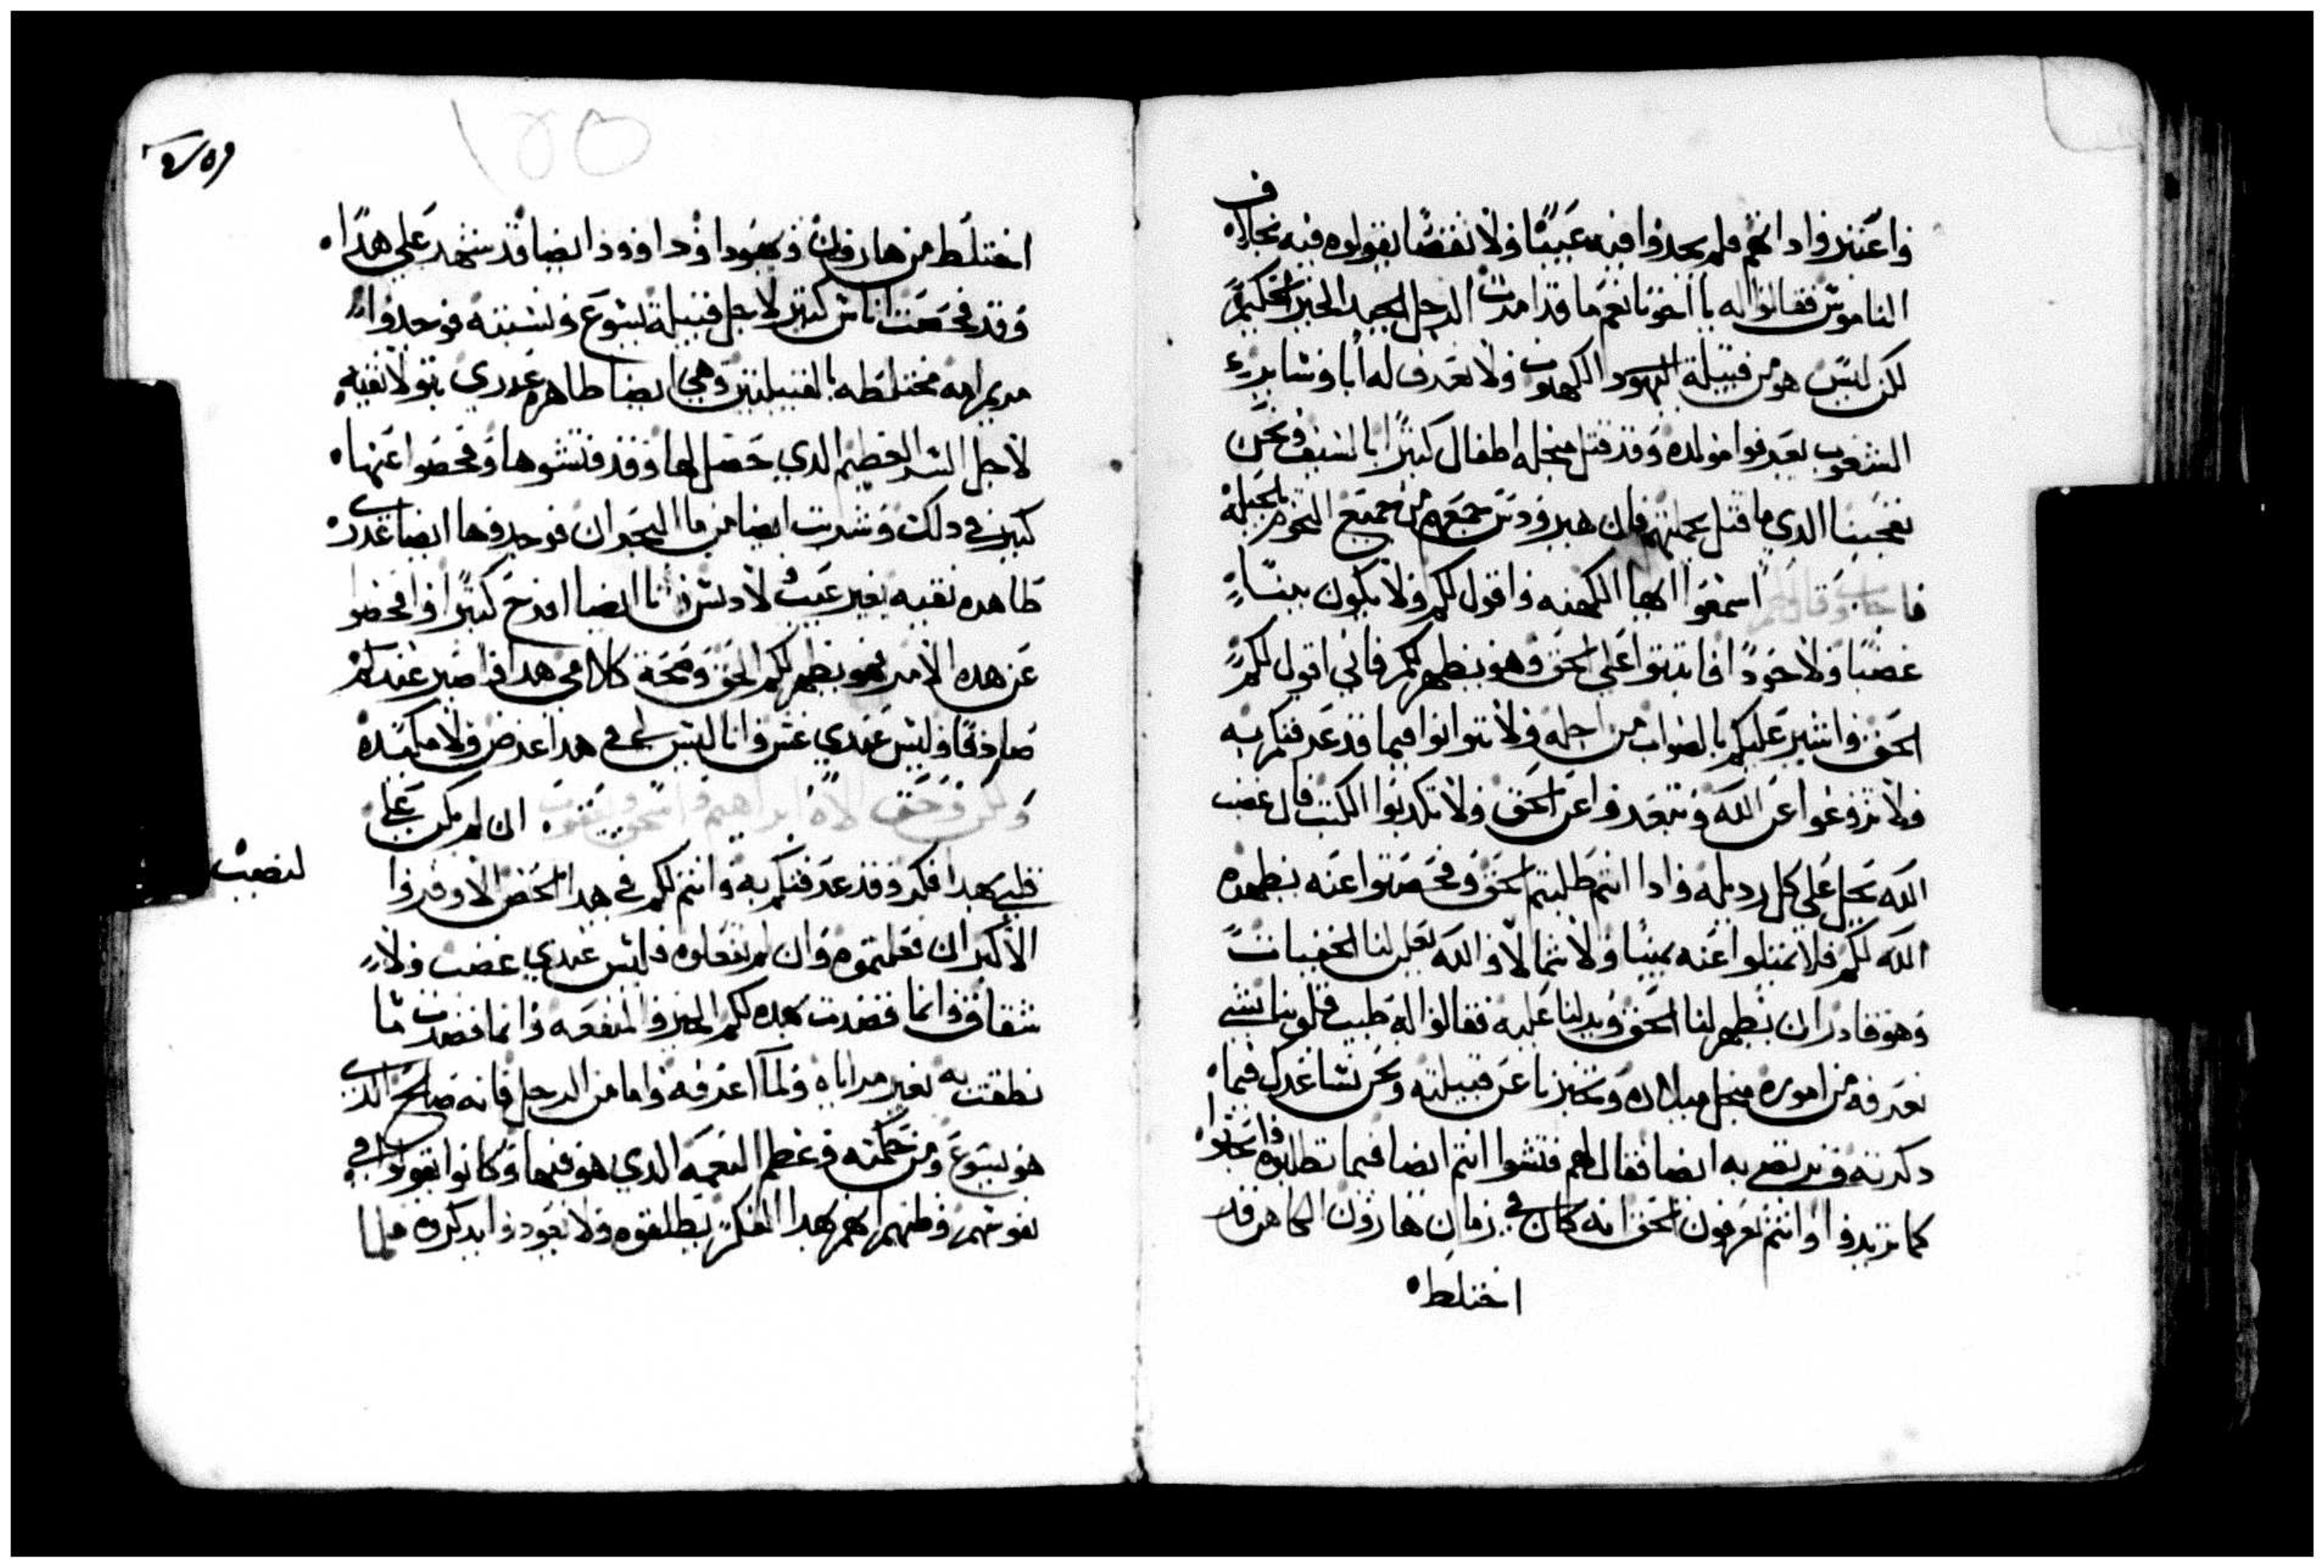 واعتبروا دانهم فلم يجدوا فيه عيبًا ولا نقصًا يقولوه فيه بخلاف
الناموس فقالوا له يا اخونا نعم ما قد امرت الرجل الجيد الخير الحكيم
لكن ليس هو من قبيلة اليهود الكهنوت ولا نعرف له أبا وساير
الشعوب يعرفوا مولده وقد قتل منجله اطفال كتيرًا بالسيف ونحن
تعجبنا الدي ما قتل بجملتهم فان هيرودس جمعهم من جميع التخوم بجملة
فاجاب وقال لهم اسمعوا ايها الكهنه واقول لكم ولا يكون بيننا
غضبًا ولا حردًا فاتبتوا على الحق وهو يظهر لكم فاني اقول لكم
الحق واشير عليكم بالصواب من اجله ولا تتوانوا فيما قد عرفتكم به
ولا تروغوا عن الله وتبعدوا عن الحق ولا تكدبوا الكتب فان غضب
الله يحل على كل رديله وادا انتم طلبتم الحق وفحصتوا عنه يظهره
الله لكم فلا تميلوا عنه يمينًا ولا شمالًا والله يعلن لنا الخفيات
وهو قادر ان يظهر لنا الحق ويدلنا عليه فقالوا له طيب قلوبنا بشي
نعرفه من اموره منجل ميلاده وتخبرنا عن قبيلته ونحن نساعدك فيما
دكرته ونرتضي به ايضا فقال لهم فتشوا انتم ايضا فيما تطلبوه
كما تريدوا وانتم تعرفون الحق انه كان في زمان هارون الكاهن قد
اختلط
١٥٥
اختلط من هارون ويهودا وداوود ايضا قد شهد على هدا
وقد فحصت اناس كتير لاجل قبيلة يسوع ونسبته فوجدوا
مريم امه مختلطه بالقبيلتين وهي ايضا طاهره عدري بتول نقيه
لاجل السر العظيم الدي حصل لها وقد فتشوها وفحصوا عنها
كتير في دلك وشربت ايضا من ما البحران فوجدوها ايضا عدري
طاهره نقيه بغير عيب ولا دنس وانا ايضا افرح كتيرًا وافحصوا
عن هده الامر فهو يظهر لكم الحق وصحة كلامي هدا واصير عندكم
صادقا وليس عندي غش وانا ليس لي في هدا غرض ولا مكيده
ولكن وحق الاه ابراهيم واسحق ويعقوب ان لم يكن على
قلبي هدا فكر وقد عرفتكم به وانتم لكم في هدا الحض الاوفر وا
لنصيب
الاكبر ان فعلتموه وان لم تفعلوه فليس عندي غضب ولا
شقاق وانما قصدت بهده لكم الخير والمنفعه وانما قصدت ما
نطقت به بغير مراياه ولما اعرفه واما من الرجل فانه صالح الدي
هو يسوع ومن حكمته وعظم النعمه الدي هو فيها وكانوا يقولوا في
نفوسهم وظنهم انهم بهدا الفكر يطلقوه ولا يعودوا يدكروه فلما